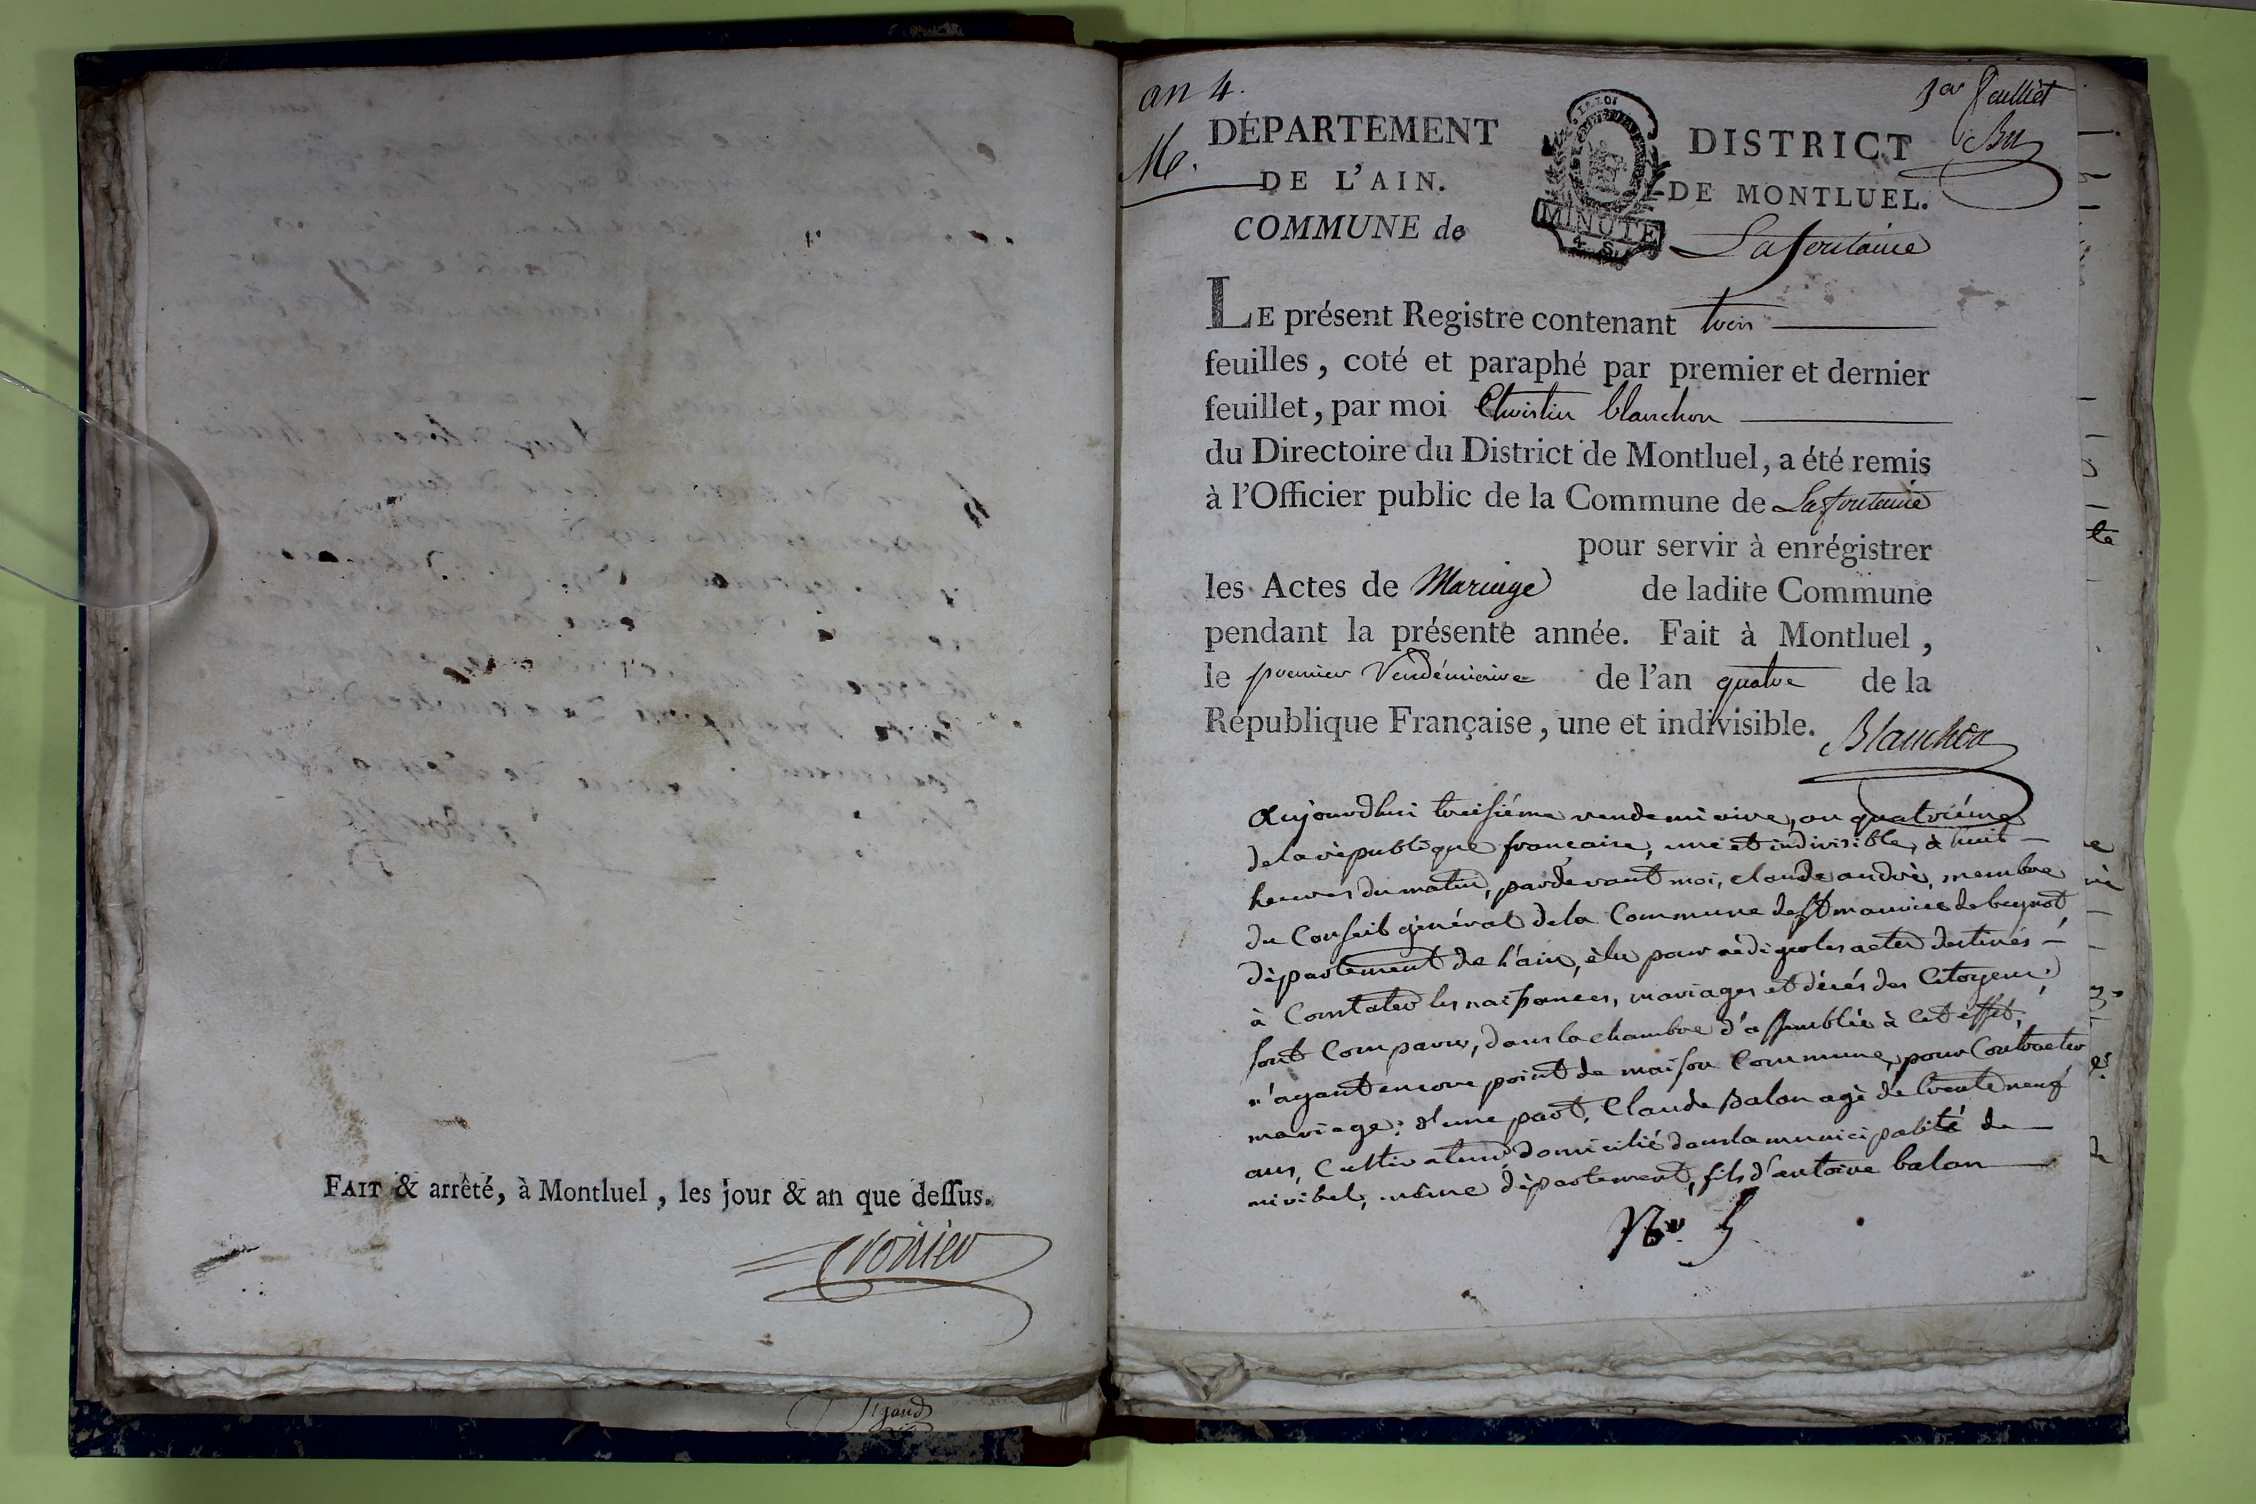 FAIT & arrêté, à Montluel, les jour & an que dessus.
Sigaud
an 4.
M.
1er feuillet
DÉPARTEMENT
DE L'AIN.
COMMUNE de
LA LOI
MINUTE
4. S.
DISTRICT
DE MONTLUEL.
Lafontaine
LE présent Registre contenant trois
feuilles, coté et paraphé par premier et dernier
feuillet, par moi Christin blanchon
du Directoire du District de Montluel, a été remis
à l'Officier public de la Commune de Lafontaine
pour servir à enrégistrer
les Actes de Mariage de ladite Commune
pendant la présente année. Fait à Montluel,
le premier Vendémiaire de l'an quatre de la
République Française, une et indivisible.
Blanchon
aujourdhui treisiéme vendemiaire, an quatriéme
de la république francaise, une et indivisible, à huit
heures du matin, pardevant moi, claude andré, membre
du Conseil général de la Commune de st maurice de beynot,
département de l'ain, élu pour rédiger les actes destinés
à Constater les naissances, mariages et décés des Citoyens,
sont Comparus, dans la chambre d'assemblée à cet effet,
n'ayant encore point de maison Commune, pour Contracter
mariage; d'une part, Claude Balon agé de trente neuf
ans, Cultivateur, domicilié dans la municipalité de
miribel, même département, fils d'antoine balon